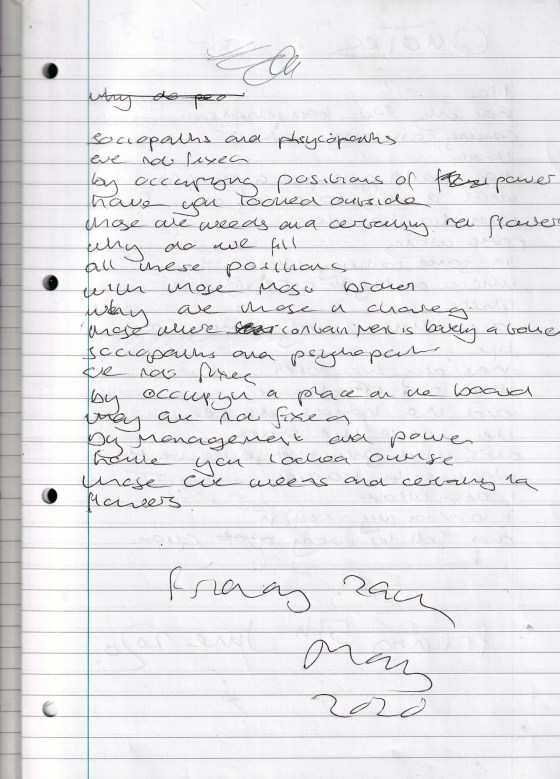 why do peo
sociopaths and phsycopaths
are not fixed
by occupying positions of power
have you looked outside
those are weeds and certainly not flowers
why do we fill
all these positions
with those most broken
why are those in
those where contain is barely a
sociopaths and psychopath
are not fixed
by occupyn a place on the board
they are not fixed
by management and power
have you looked
those are weeds and certainly
flowers
Friday
May
2020